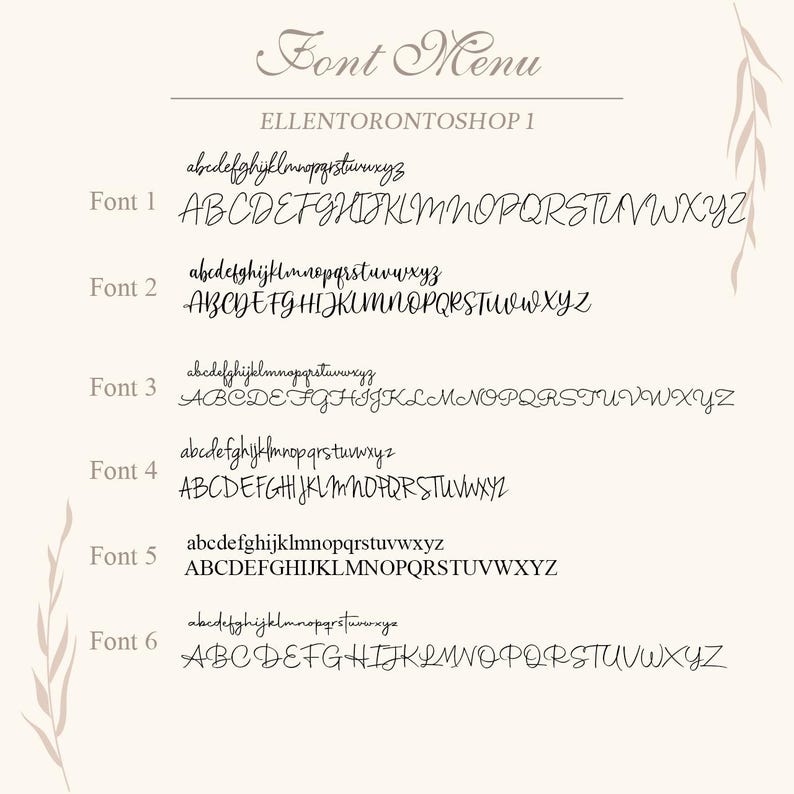 Font Menu
ELLENTORONTOSHOP 1
abcdefghijklmnopqrstuvwxyz
Font 1
ABCDEFGHIJKLMNOPQRSTUVWXYZ
abcdefghijklmnopqrstuvwxyz
Font 2
ABCDEFGHIJKLMNOPQRSTUVWXYZ
abcdefghijklmnopqrstuvwxyz
Font 3
ABCDEFGHIJKLMNOPQRSTUVWXYZ
abcdefghijklmnopqrstuvwxyz
Font 4
ABCDEFGHIJKLMNOPQRSTUVWXYZ
abcdefghijklmnopqrstuvwxyz
Font 5
ABCDEFGHIJKLMNOPQRSTUVWXYZ
abcdefghijklmnopqrstuvwxyz
Font 6
ABCDEFGHIJKLMNOPQRSTUVWXYZ